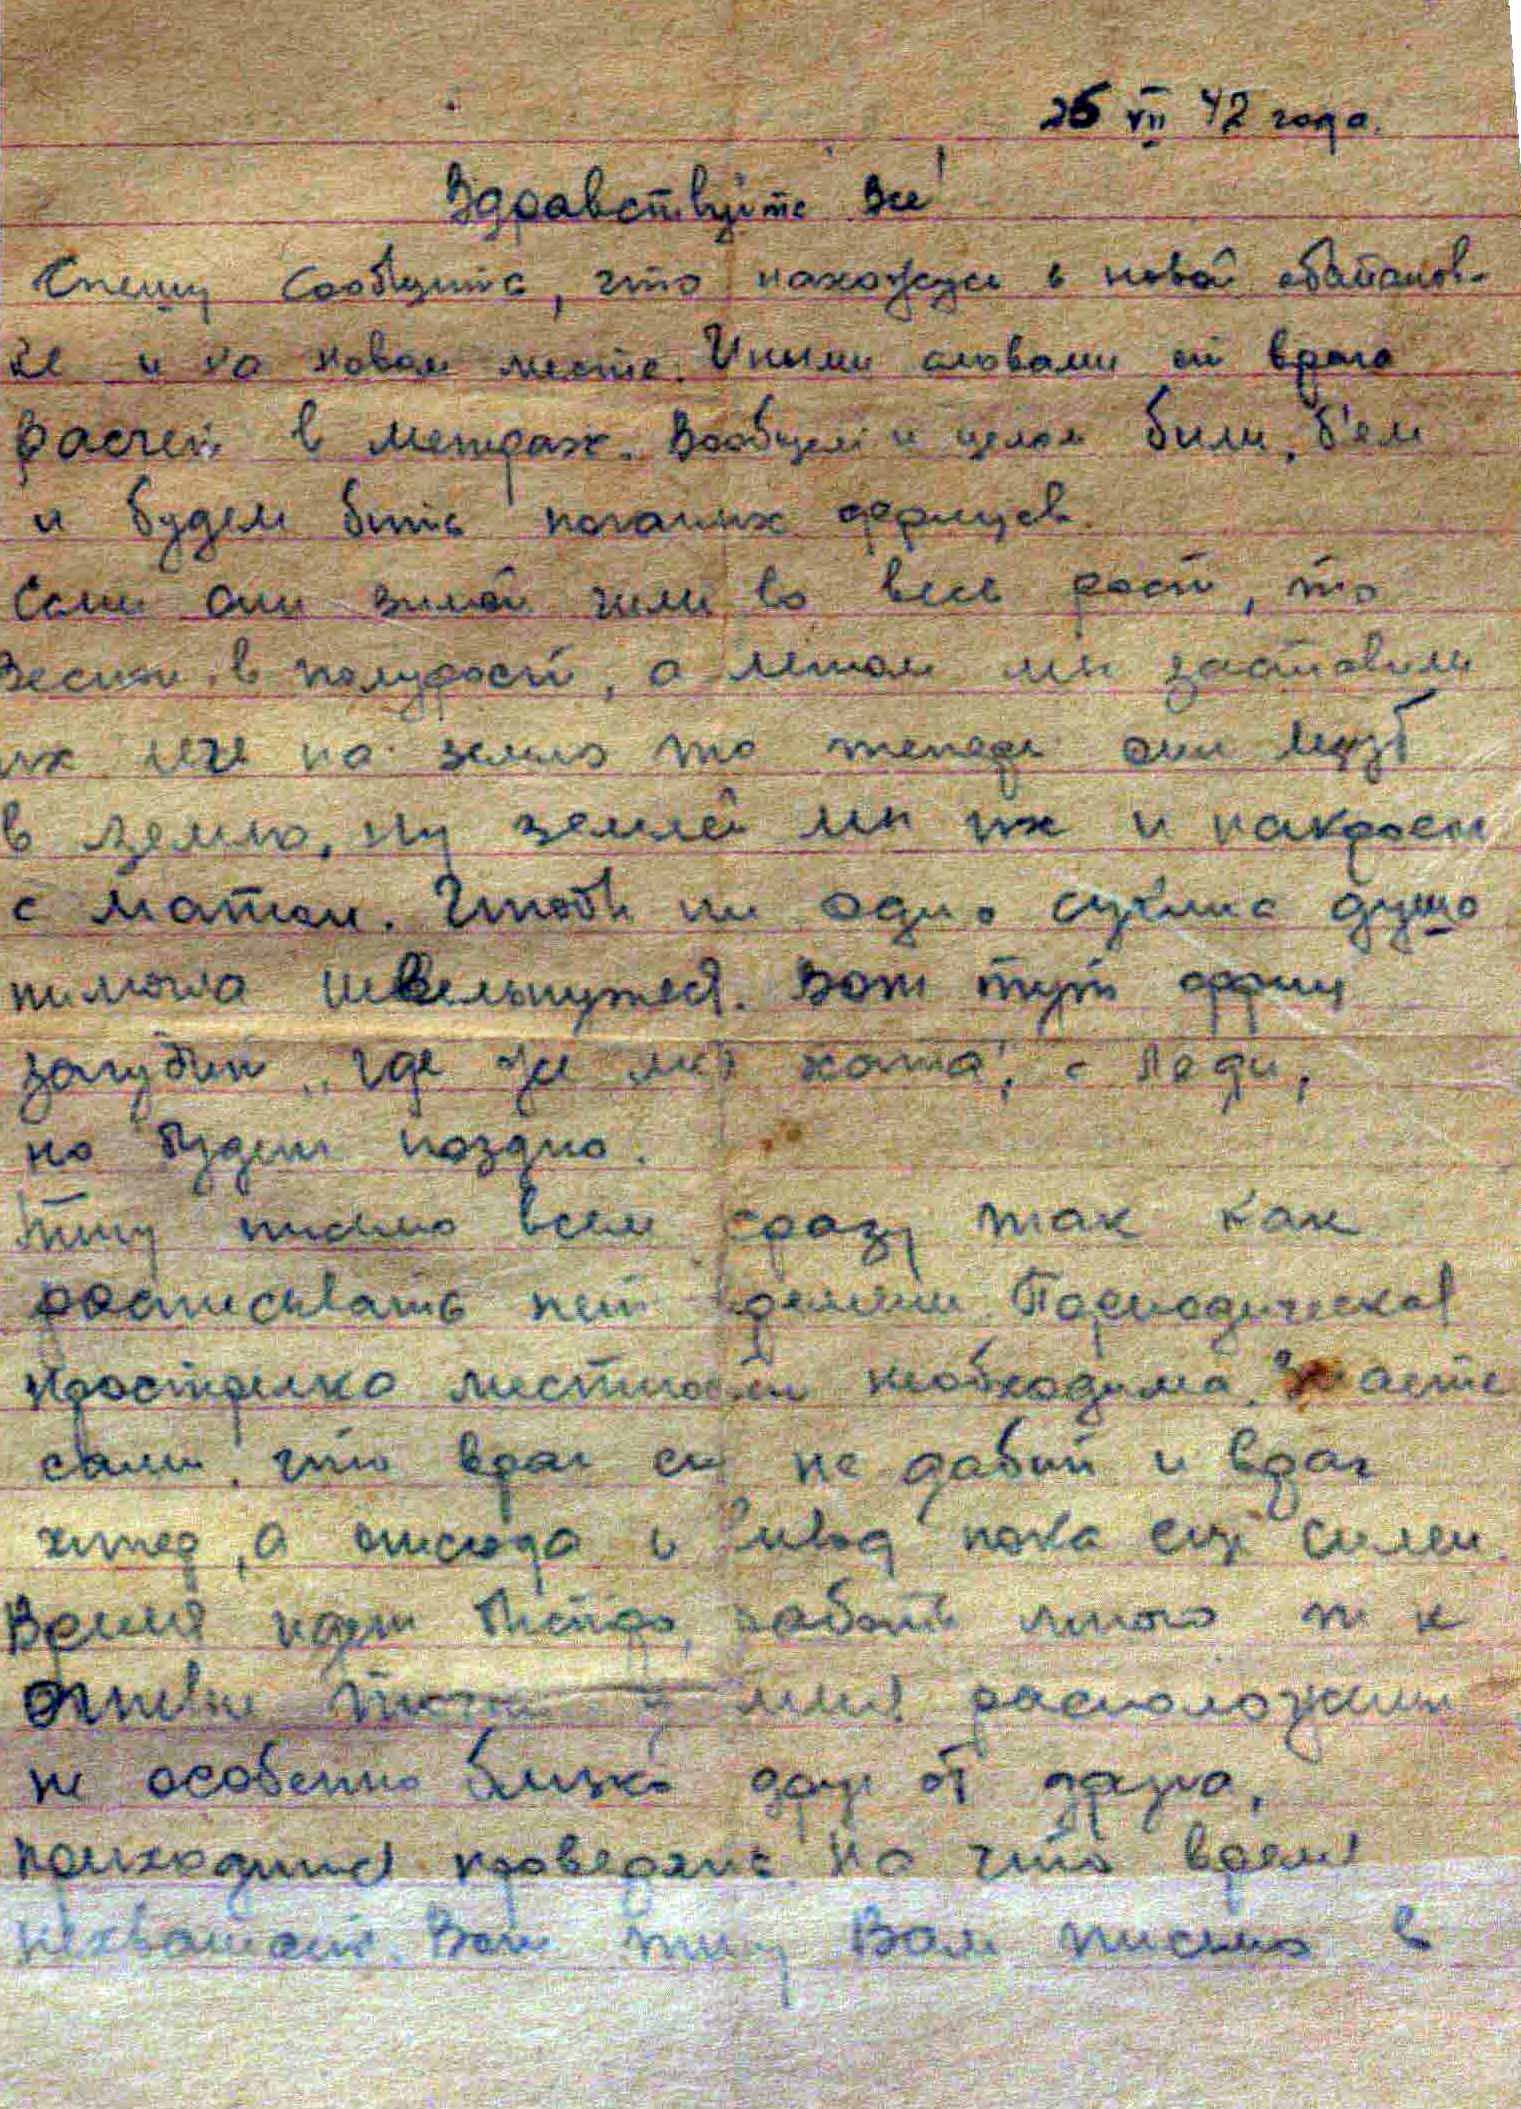 25 VII 42 года.
Здравствуйте все!
Спешу сообщить, что нахожусь в новой обстанов-
ке и на новом месте. Иными словами от врага
расчет в метраж. Вообщем и целом били, б'ем
и будем бить поганых фрицев.
Если они зимой шли во весь рост, то
весной в полурост, а летом мы заставили
их лечь на землю то теперь они лезут
в землю, ну землей мы их и накроем
с матом. Чтобы ни одна сукина душа
немогла шевельнутся. Вот тут фриц
"где же моя хата", с леди,
но будет поздно.
Пишу письмо всем сразу так как
расписывать нет времени. Периодическая
прострелка местности необходима. Знаете
сами, что враг ещ не добит и враг
хитер, а отсюда и вывод пока ещ силен.
Время идет быстро, работы много т к
огневые точки у меня расположены
не особенно близко друг от друга,
приходится проверять. На что время
нехватает. Вот пишу Вам письмо в